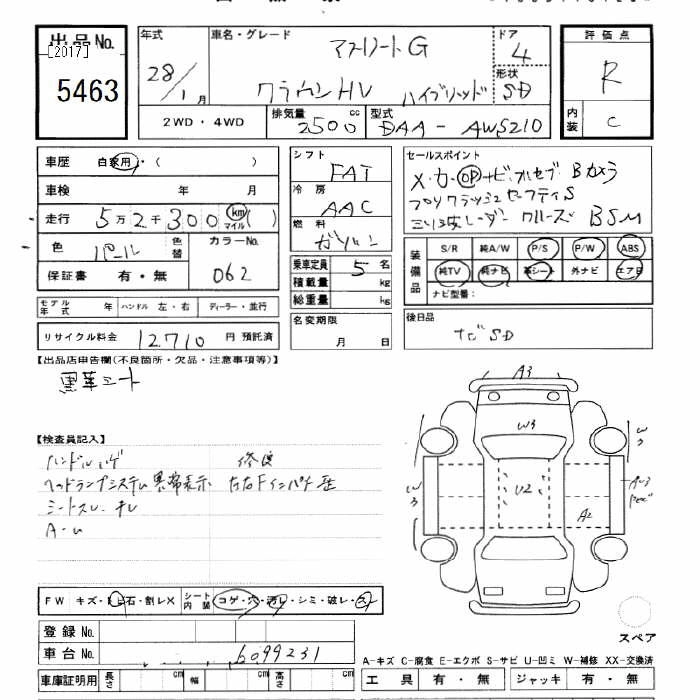 出品No.
[2017]
5463
年式
28/1月
車名・グレード
アスリートG
クラウンHV ハイブリッド
ドア
4
形状
SD
評価点
R
内装
C
2WD・4WD
排気量
2500 cc
型式
DAA-AWS210
車歴
自家用・( )
車検
年 月
走行
5万2千300 km マイル ( )
色
パール
色替
カラーNo.
062
保証書
有・無
モデル年式
年
ハンドル 左・右
ディーラー・並行
リサイクル料金
12,710 円 預託済
シフト
FAT
冷房
AAC
燃料
ガソリン
乗車定員
5名
積載量
kg
総重量
kg
名変期限
月 日
セールスポイント
ナビ フルセグ Bカメラ
プリクラッシュセーフティS
ミリ波レーダー クルーズ BSM
装備品
S/R 純A/W P/S P/W ABS
純TV 純ナビ 革シート 外ナビ エアB
ナビ型番:
後日品
ナビSD
【出品店申告欄(不良箇所・欠品・注意事項等)】
黒革シート
【検査員記入】
ハンドルハゲ
ヘッドランプシステム異常表示
シートスレ・キレ
A-U
修復
左右Fインパネ歪
A3
W3
W3
W3
U2
A2
FW キズ・トビ石・割レX
シート内装
コゲ・穴・汚レ・シミ・破レ・
登録No.
車台No.
6099231
車庫証明用
長さ cm 幅 cm 高さ cm
スペア
A-キズ C-腐食 E-エクボ S-サビ U-凹ミ W-補修 XX-交換済
工具 有・無 ジャッキ 有・無